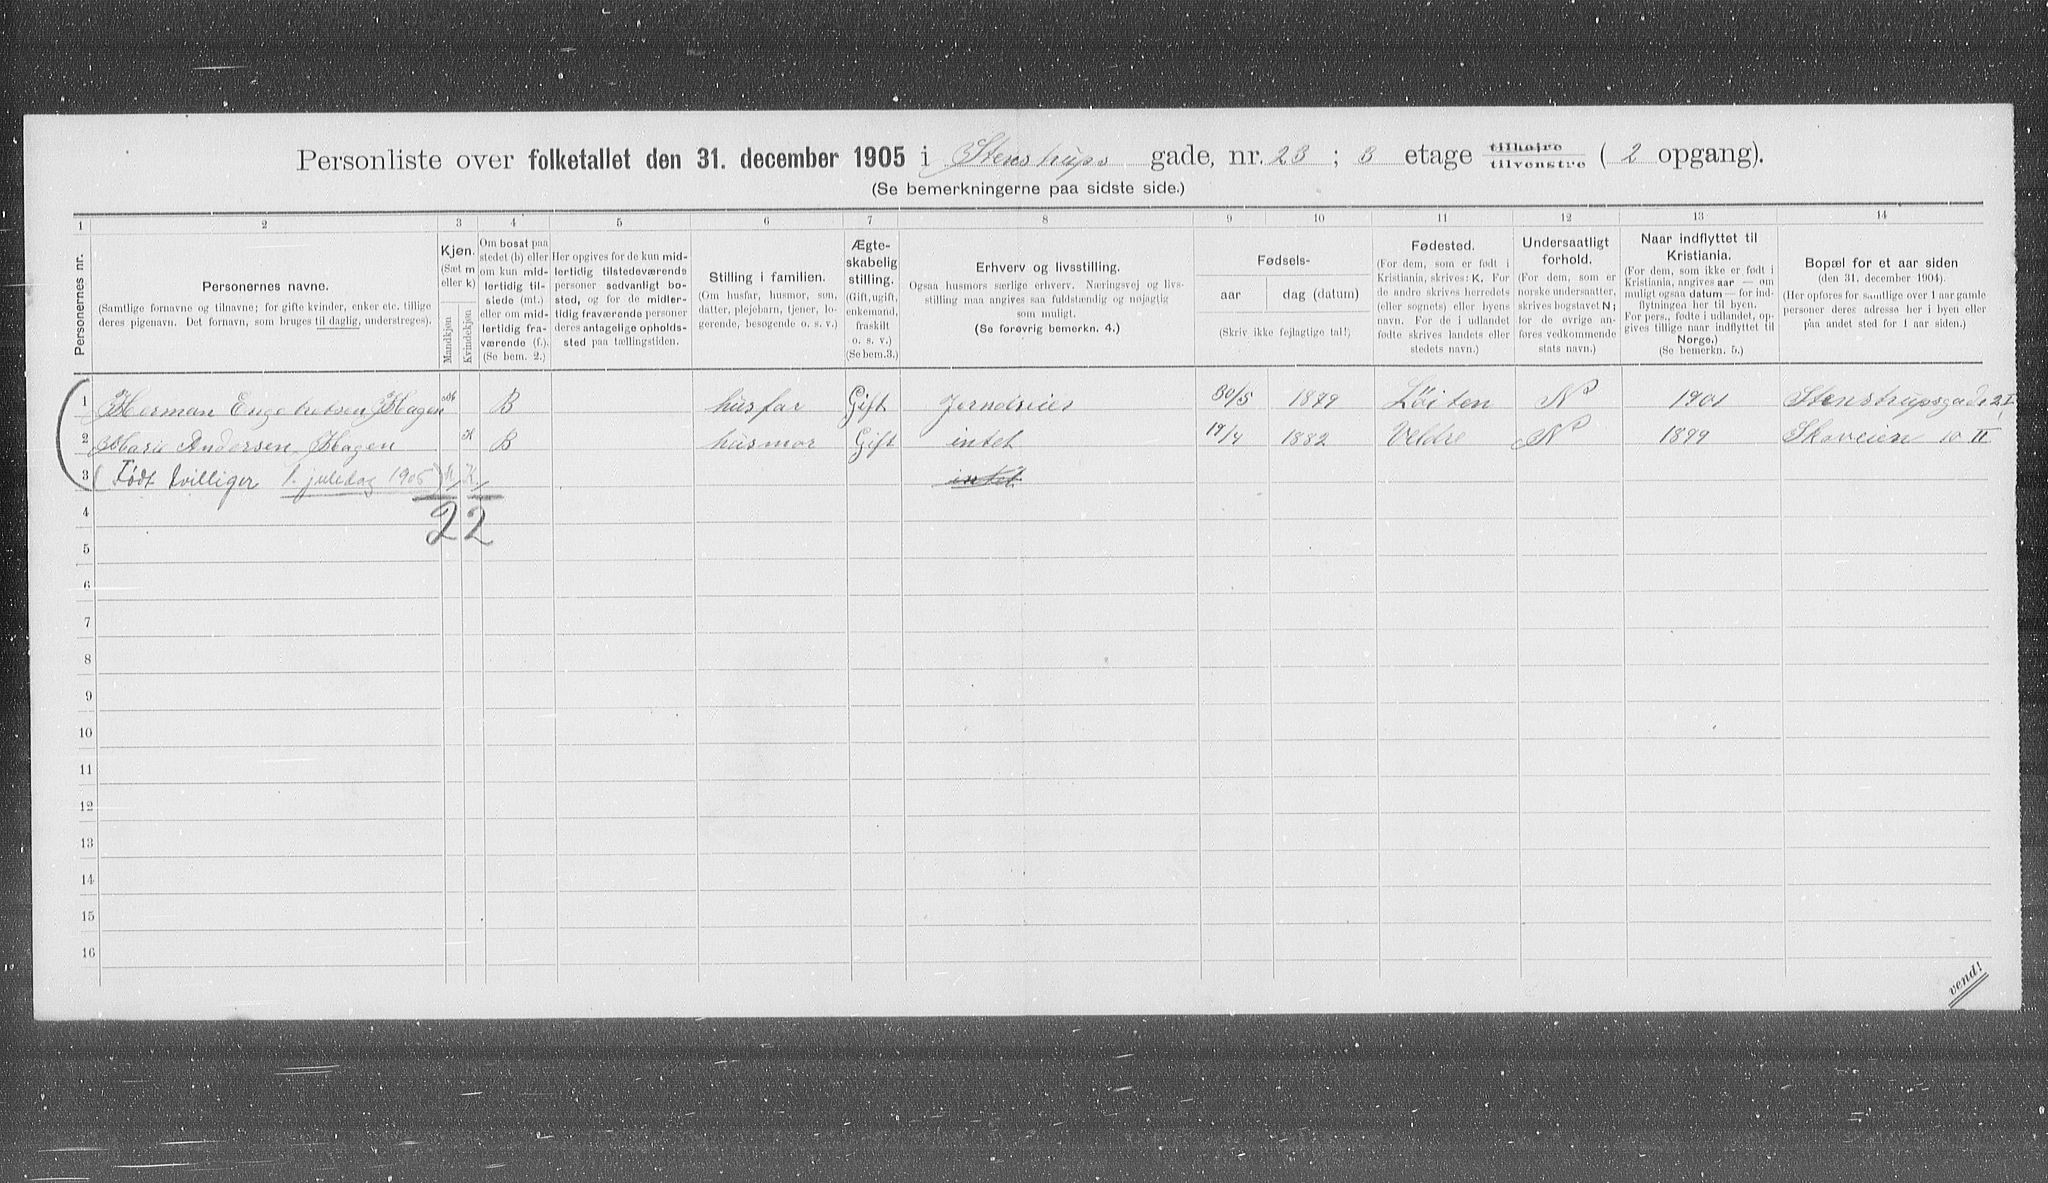 Personliste over folketallet den 31. december 1905 i Stenstrups gade, nr. 23 ; 3 etage tilhøjre tilvenstre ( 2 opgang).
(Se bemerkningerne paa sidste side.)
1 2 3 4 5 6 7 8 9 10 11 12 13 14
Personernes nr.
Personernes navne.
(Samtlige fornavne og tilnavne; for gifte kvinder, enker etc. tillige
deres pigenavn. Det fornavn, som bruges til daglig, understreges).
Kjøn.
(Sæt m
eller k)
Mandkjøn
Kvindekjøn
Om bosat paa
stedet (b) eller
om kun mid-
lertidig til-
stede (mt.)
eller om mid-
lertidig fra-
værende (f.).
(Se bem. 2.)
Her opgives for de kun mid-
lertidig tilstedeværende
personer sedvanligt bo-
sted, og for de midler-
tidig fraværende personer
deres antagelige opholds-
sted paa tællingstiden.
Stilling i familien.
(Om husfar, husmor, søn,
datter, plejebarn, tjener, lo-
gerende, besøgende o. s. v.)
Ægte-
skabelig
stilling.
(Gift, ugift,
enkemand,
fraskilt
o. s. v.)
(Se bem. 3.)
Erhverv og livsstilling.
Ogsaa husmors særlige erhverv. Næringsvej og livs-
stilling maa angives saa fuldstændig og nøjagtig
som muligt.
(Se forøvrig bemerkn. 4.)
Fødsels-
aar
dag (datum)
(Skriv ikke fejlagtige tal!)
Fødested.
(For dem, som er født i
Kristiania, skrives: K. For
de andre skrives herredets
(eller sognets) eller byens
navn. For de i udlandet
fødte skrives landets eller
stedets navn.)
Undersaatligt
forhold.
(For dem, som er
norske undersaatter,
skrives bogstavet N;
for de øvrige an-
føres vedkommende
stats navn.)
Naar indflyttet til
Kristiania.
(For dem, som ikke er født i
Kristiania, angives aar — om
muligt ogsaa datum — for ind-
flytningen her til byen.
For pers., fødte i udlandet, op-
gives tillige naar indflyttet til
Norge.)
(Se bemerkn. 5.)
Bopæl for et aar siden
(den 31. december 1904).
(Her opføres for samtlige over 1 aar gamle
personer deres adresse her i byen eller
paa andet sted for 1 aar siden.)
1 Herman Engebretsen Hagen M B husfar Gift 30/5 1879 Löiten N 1901 Stenstrupsgade 2 I
2 Marie Andersen Hagen K B husmor Gift intet 19/4 1882 Veldre N 1899 Skoveien 10 II
3 (Født tvilliger 1. juledag 1905) intet
2 2
4
5
6
7
8
9
10
11
12
13
14
15
16
vend!